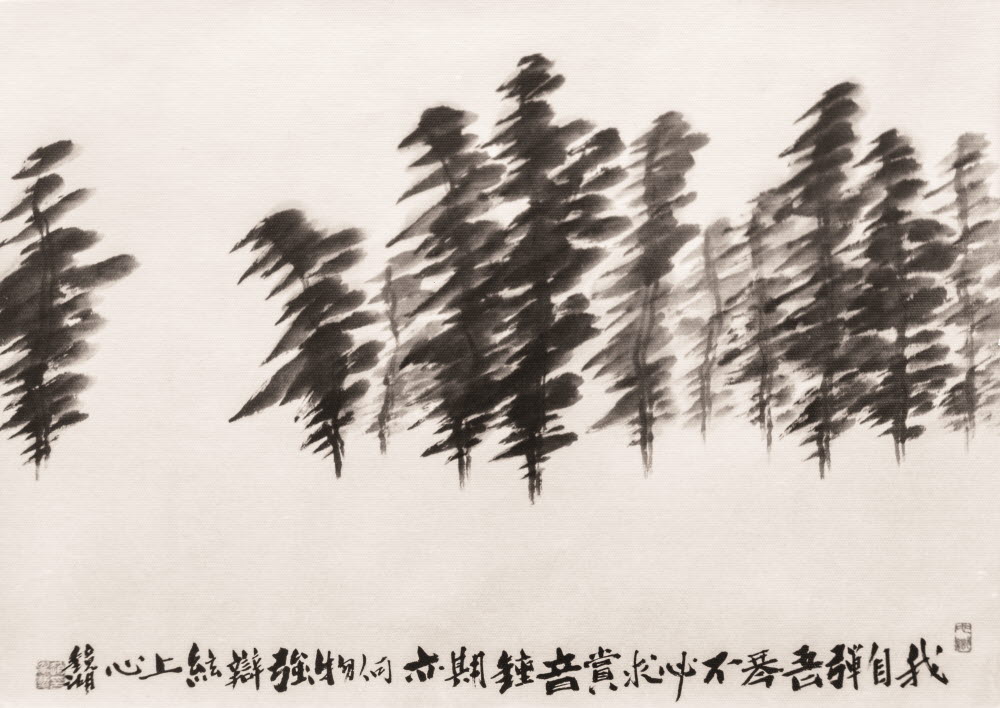 我自彈吾琴不必求賞音鍾期亦何物強辯絃上心 鏡湖